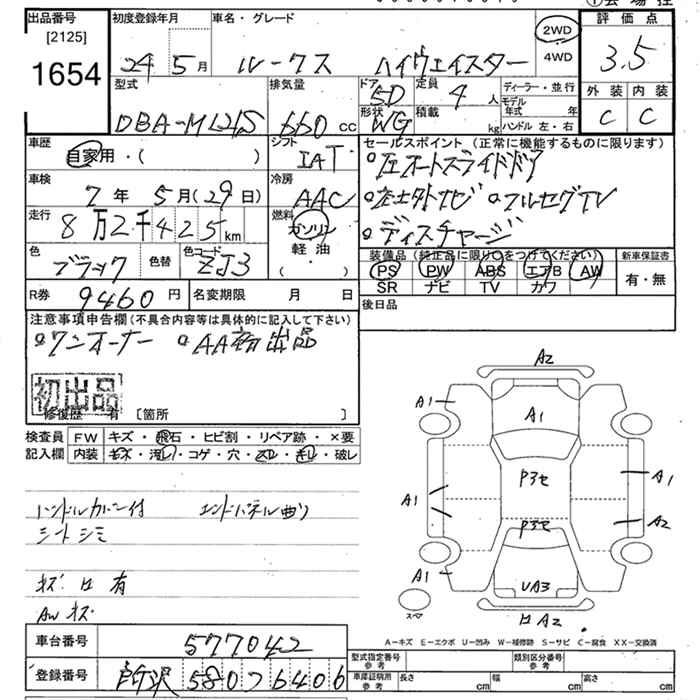 出品番号 [2125] 1654
初度登録年月 24年 5月
車名・グレード ルークス ハイウェイスター
2WD
4WD
評価点 3.5
外装 内装
C C
型式 DBA-ML21S
排気量 660 cc
ドア 5D
形状 WG
定員 4人
積載 kg
ディーラー・並行
モデル年式 年
ハンドル 左・右
車歴 自家用・( )
シフト IAT
車検 7年 5月(29日)
冷房 AAC
走行 8万2千425km
燃料 ガソリン・軽油・( )
色 ブラック 色替 色コード ZJ3
セールスポイント (正常に機能するものに限ります)
○左オートスライドドア
○社外ナビ ○フルセグTV
○ディスチャージ
装備品(純正品に限り○をつけてください) 新車保証書
PS PW ABS エアB AW 有・無
SR ナビ TV カワ
R券 9460円 名変期限 月 日
後日品
注意事項申告欄(不具合内容等は具体的に記入して下さい)
○ワンオーナー ○AA初出品
初出品
修復歴 有 [箇所 ]
検査員 FW キズ・飛石・ヒビ割・リペア跡・×要
記入欄 内装 キズ・汚レ・コゲ・穴・スレ・キレ・破レ
ハンドルカバー付 エンドパネル曲り
シートシミ
キズ 口 有
AWキズ
A2
A1 A1
P3セ
A1 A1
P3セ A2
A1 UA3 A1
スペア 口A2
A－キズ E－エクボ U－凹み W－補修跡 S－サビ C－腐食 XX－交換済
車台番号 577042
型式指定番号 参考 類別区分番号 参考
登録番号 所沢 580フ6406
車庫証明用 参考 長さ cm 幅 cm 高さ cm